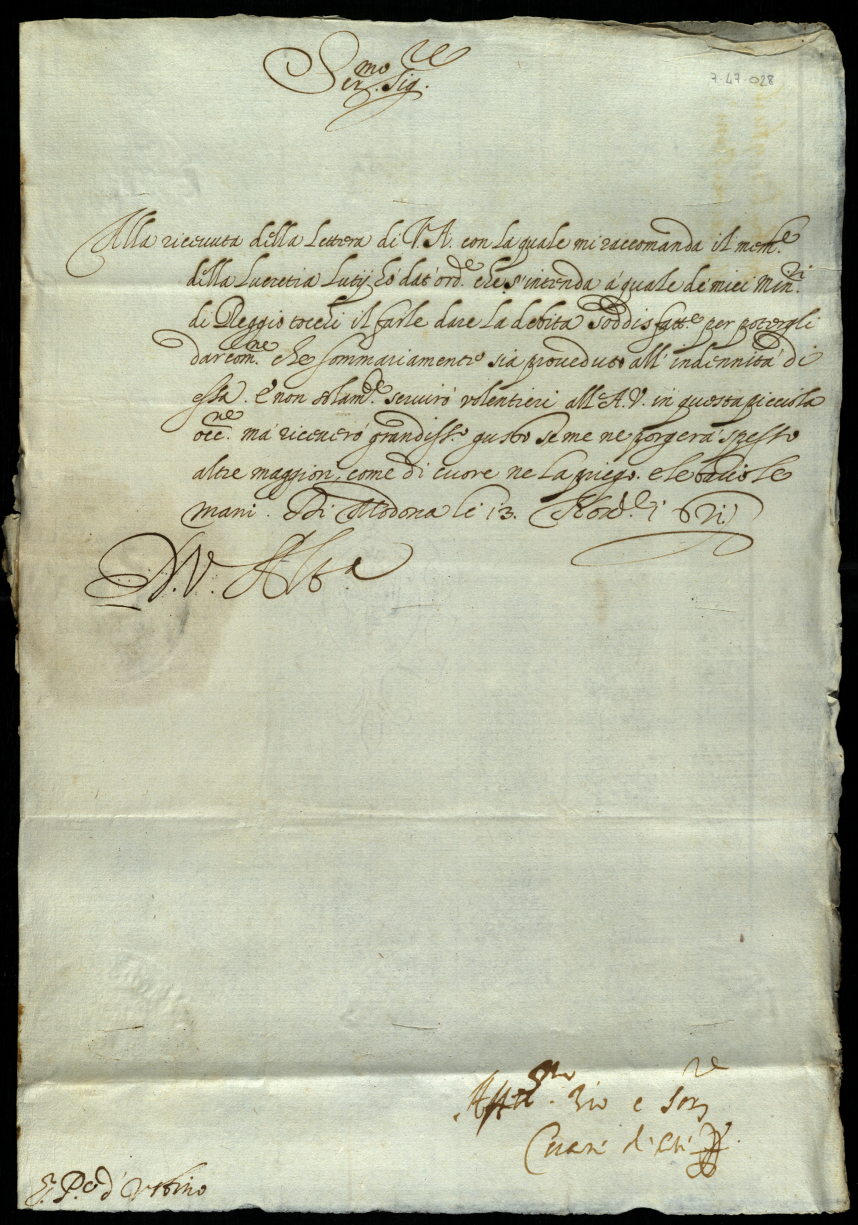 Ser.mo Sig.re
7-47-028
Alla riceuuta della lettera di V.A. con la quale mi raccomanda il mem.le
della Lucretia Lutij hò dat' ord.e che s'intenda à quale de miei Min.ri
di Reggio tocchi il farle dare la debita soddisfatt.e per potergli
dar com.ne che sommariamente sia proueduto all' indennità di
essa. E non solam.te seruirò volentieri all' A.V. in questa picciola
occ.ne ma riceuerò grandiss.o gusto se me ne porgerà spesso
altre maggiori, come di cuore ne la priego. e le bacio le
mani. Di Modona li 13.
D. V. Alt.a
Aff.mo Zio e Ser.re
Cesare d'Este
S. P.e d' Vrbino